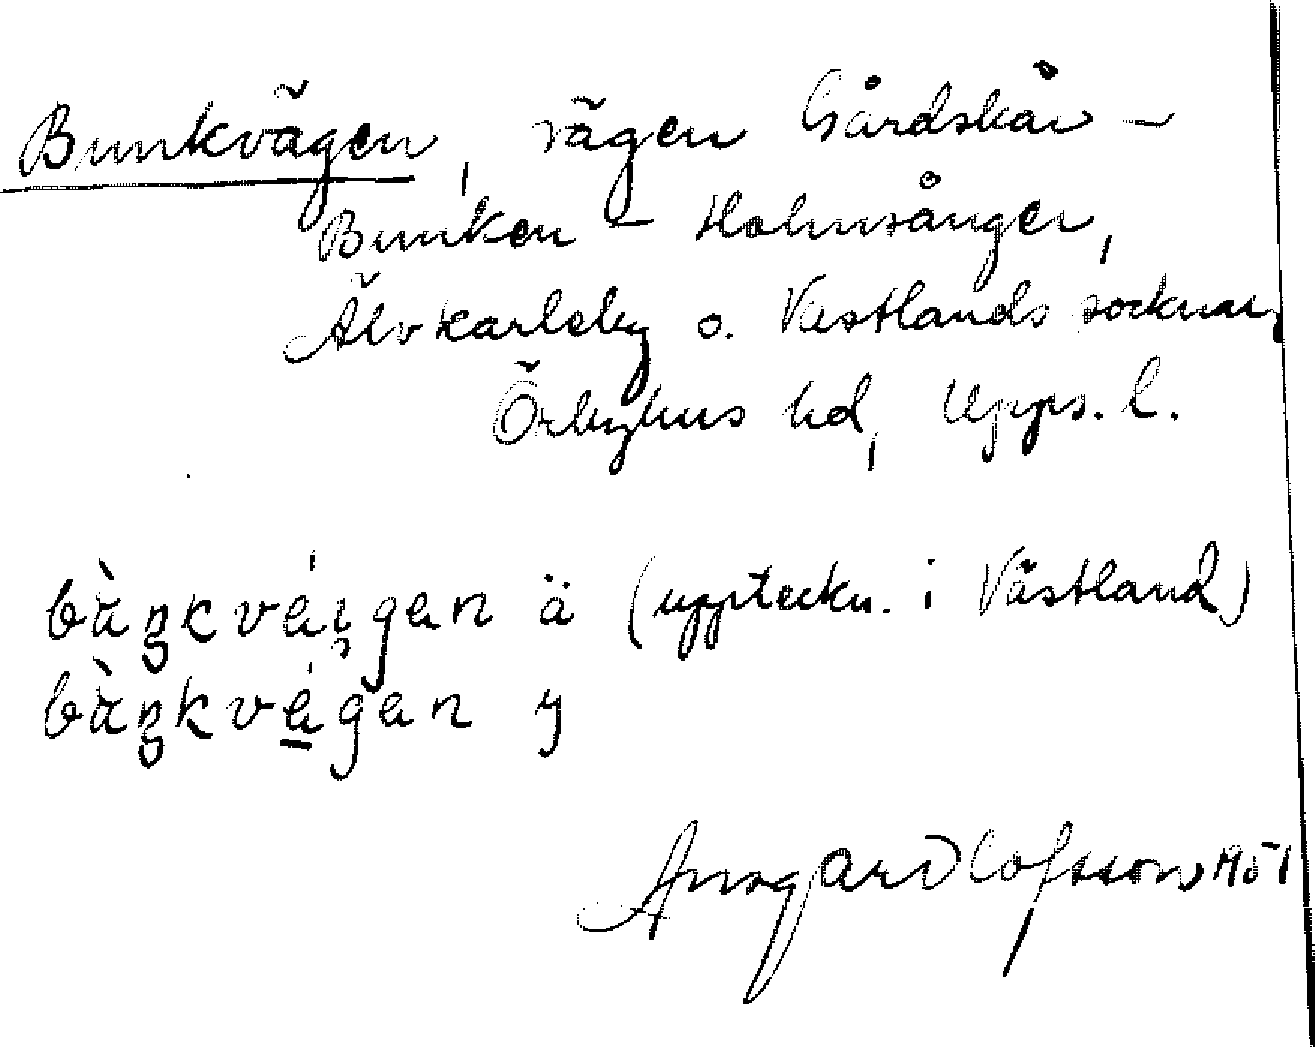 Bunkvägen, vägen Gårdskär –
Bunken – Holmsånger,
Älvkarleby o. Västlands socknar,
Örbyhus hd, Upps. l.
ä (uppteckn. i Västland)
y
Ansgar Olofsson 1951